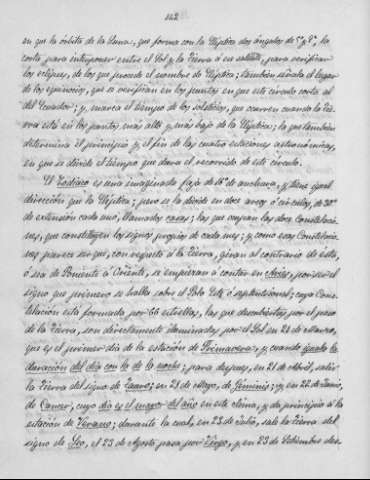 142
en que la órbita de la Luna, que forma con la Elíptica dos ángulos de 5° y 8', la
corta para interponer entre el Sol y la Tierra ó en para verificar
los eclipses, de los que procede el nombre de Elíptica; también señala el lugar
de los equinocios, que se verifican en los puntos en que este círculo corta al
del Ecuador; y, marca el tiempo de los solsticios, que ocurren cuando la Tie-
rra está en los puntos más alto y más bajo de la Elíptica; la que también
determina el principio y el fin de las cuatro estaciones astronómicas,
en que se divide el tiempo que dura el recorrido de este círculo.
El Zodiaco es una imaginada faja de 16° de anchura, y tiene igual
dirección que la Elíptica; pero se la divide en doce arcos ó círculos, de 30°
de extensión cada uno, llamados casas; las que ocupan las doce Constelacio-
nes, que constituyen los signos propios de cada mes; y como esas Constelacio-
nes parece ser que, con respecto á la Tierra, giran al contrario de ésta,
ó sea de Poniente á Oriente, se empiezan á contar en Aries, por ser el
signo que primero se halla sobre el Polo Este ó septentrional; cuya Cons-
telación está formada por 66 estrellas, las que descubiertas por el paso
de la Tierra, son directamente iluminadas por el Sol en 21 de Marzo,
que es el primer día de la estación de Primavera, y cuando iguala la
duración del día con la de la noche; para después, en 21 de Abril, salir
la Tierra del signo de Tauro; en 21 de Mayo, de Géminis; y en 22 de Junio,
de Cancer, cuyo día es el mayor del año en este clima, y da principio á la
estación de Verano; durante la cual, en 23 de Julio, sale la Tierra del
signo de Leo, el 23 de Agosto pasa por Virgo, y en 23 de Setiembre des-